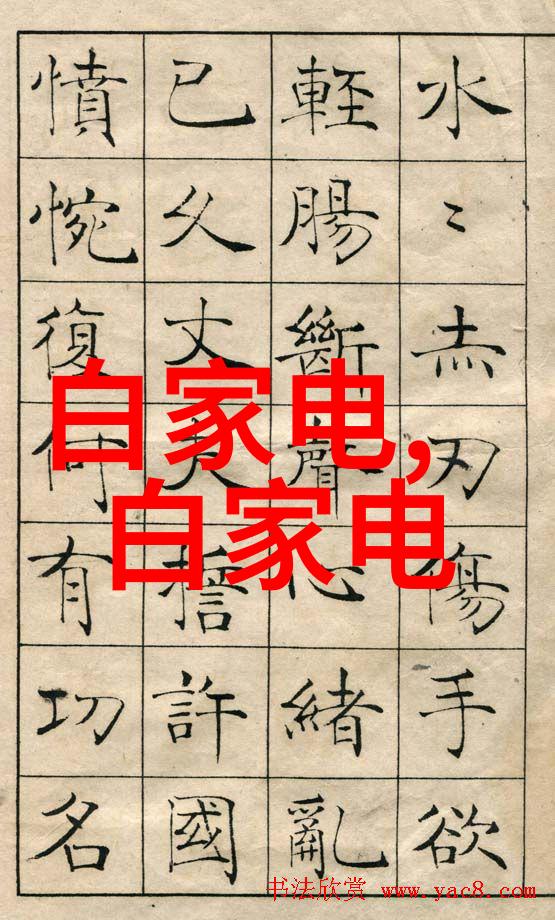 白家电,
白家电
水〻赤刃傷手欲
輕腸斷聲心緒亂
已久丈夫誓許國
憤惋復何有功名
书法欣赏 www.yac8.com